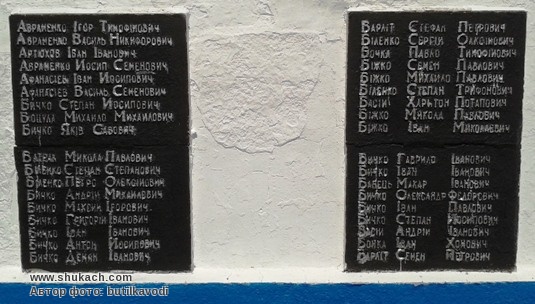 Авраменко Ігор Тимофійович
Авраменко Василь Никифорович
Артюхов Іван Іванович
Авраменко Йосип Семенович
Афанасієв Іван Йосипович
Афанасієв Василь Семенович
Бичко Степан Йосипович
Боцула Михайло Михайлович
Бичко Яків Савович
Микола Павлович
Біленко Степан Степанович
Біленко Петро Олексійович
Бичко Андрій Михайлович
Бичко Ігорович
Бичко Григорій Іванович
Бичко Іван Іванович
Бичко Антон Йосипович
Бичко Іванович
Степан Петрович
Біленко Сергій
Бочка Павло Тимофійович
Біжко Семен Павлович
Біжко Михайло Павлович
Біленко Степан Трифонович
Харьтон Потапович
Біжко Микола Павлович
Біжко Іван Миколаевич
Бичко Гаврило Іванович
Бичко Іван Іванович
Бабець Макар Іванович
Бичко Олександр Федорович
Бичко Іван Павлович
Бичко Степан Йосипович
Андрій Іванович
Бойка Іван
Семен Петрович
www.shukach.com
Автор фото: butilkavodi